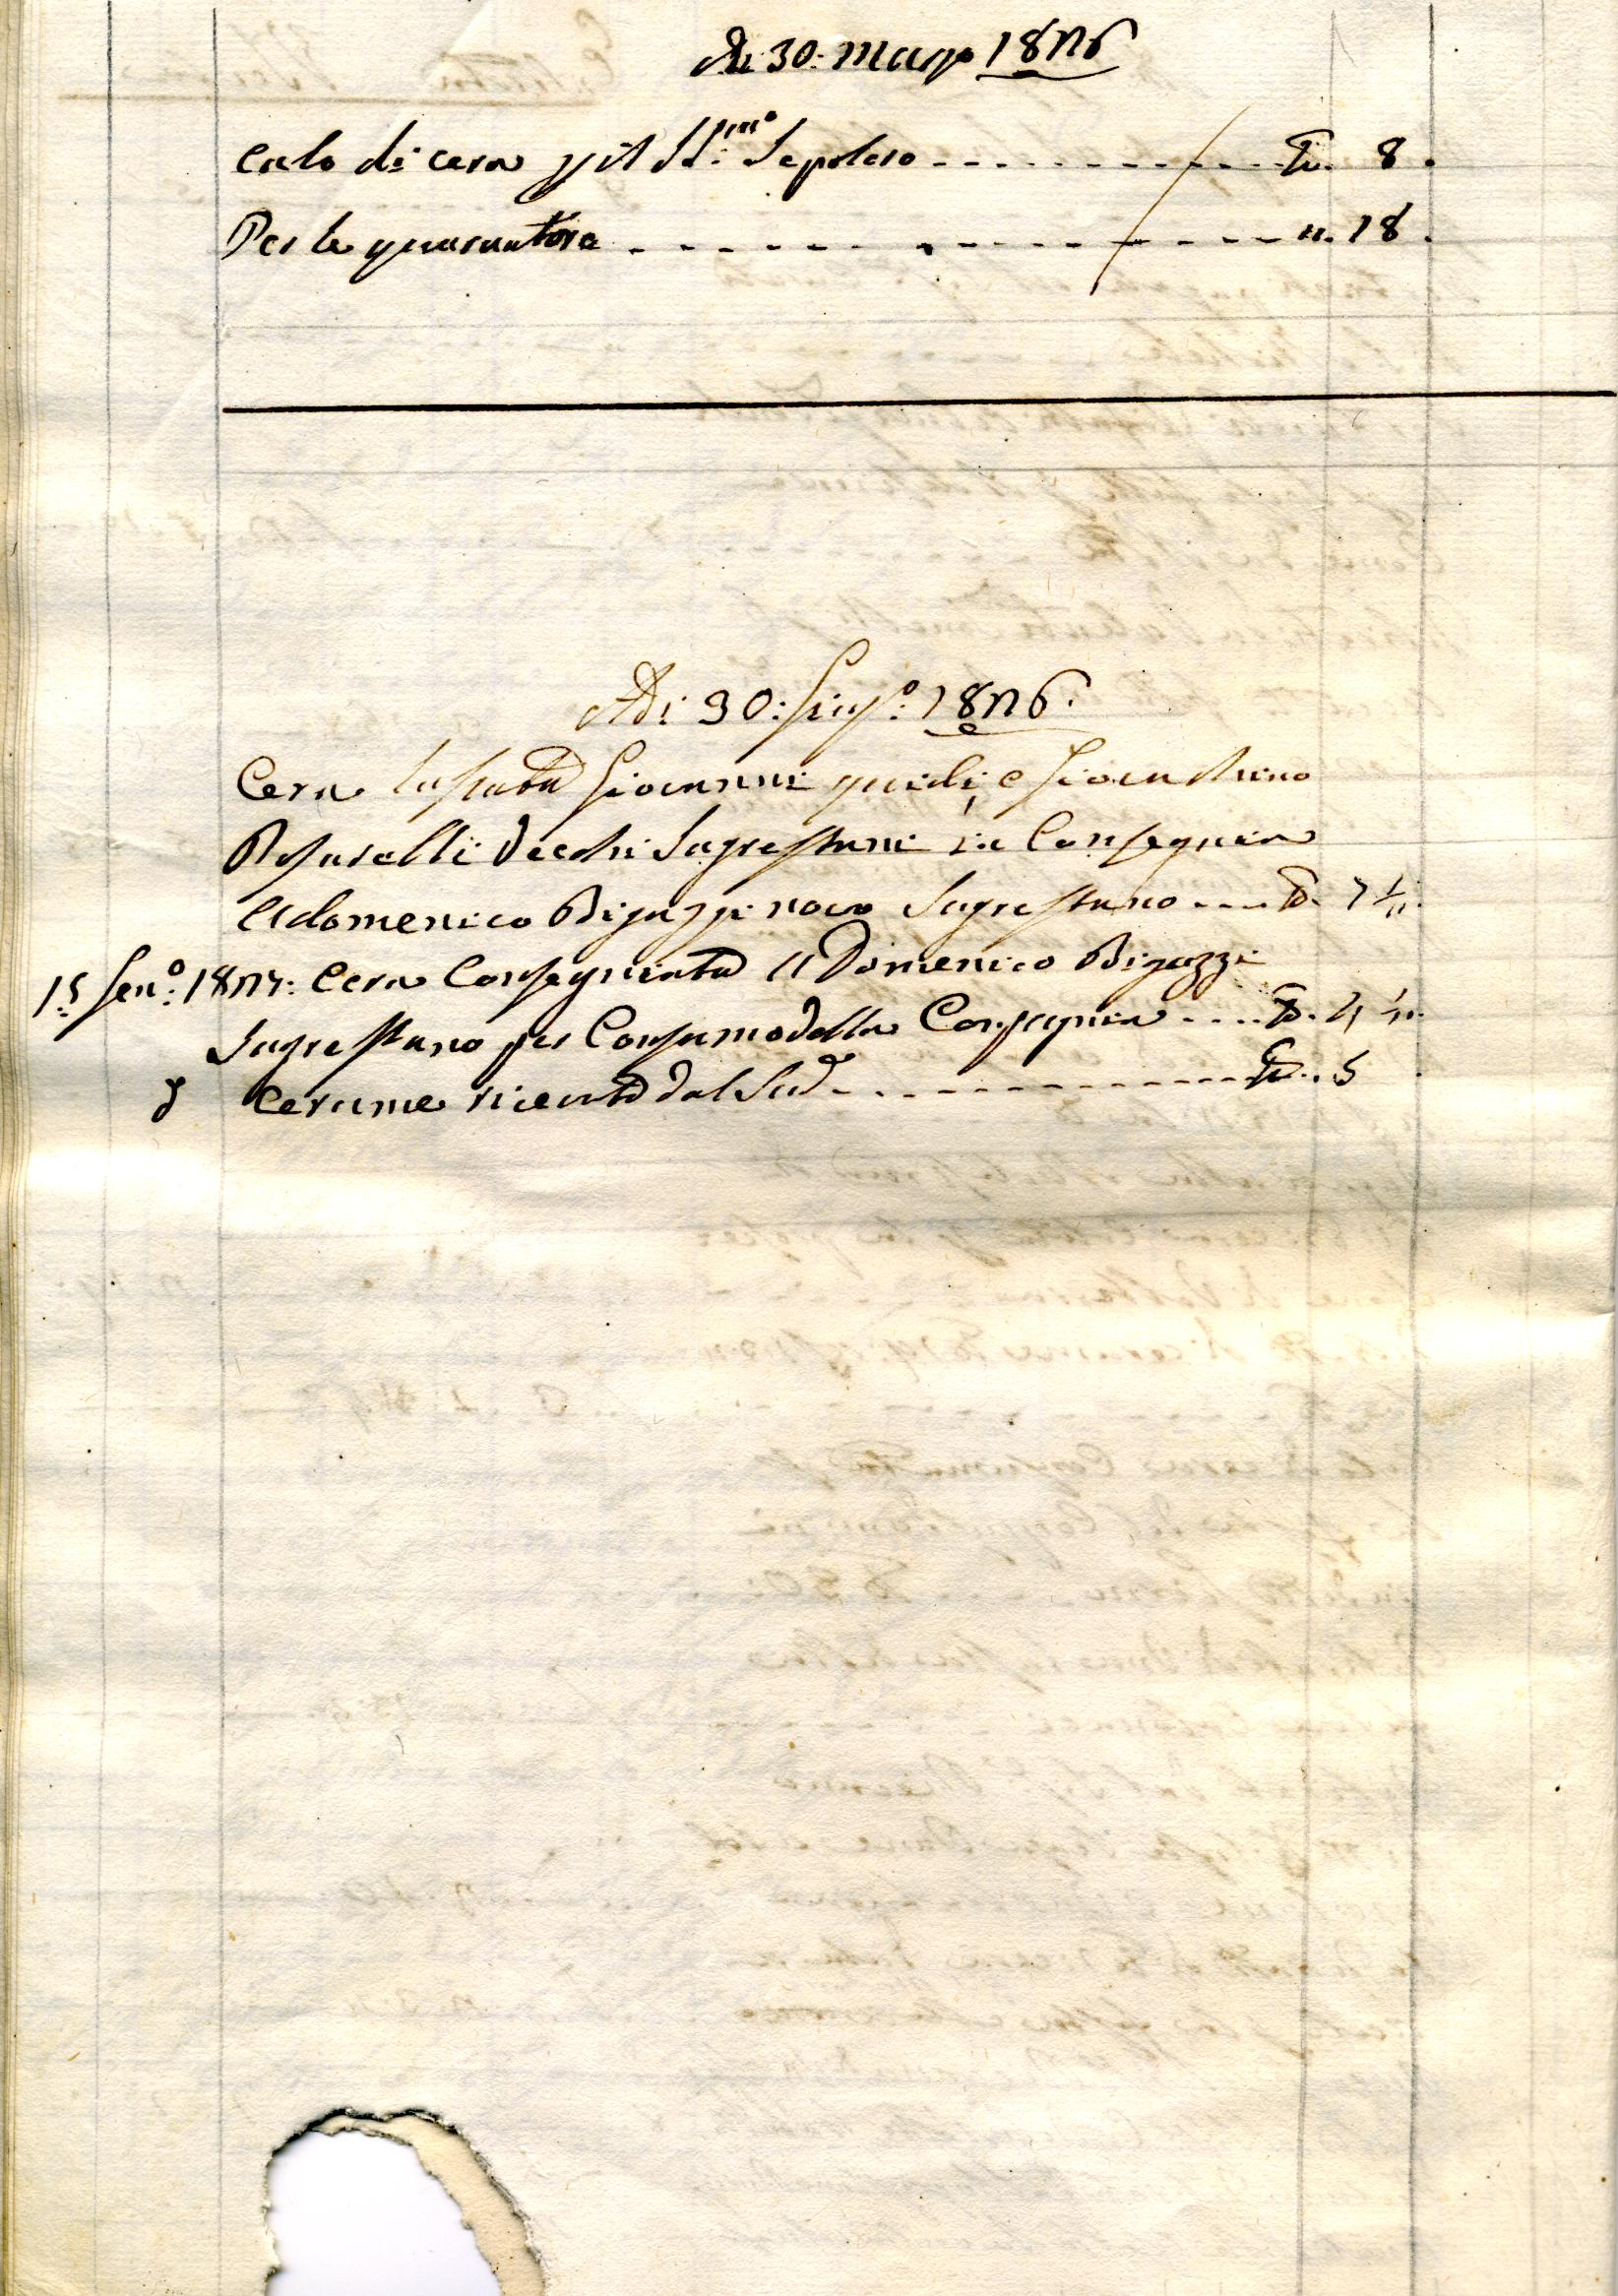 Adi 30: Maggo 1826
Calo di cera p il SS:mo Sepolcro - - - - - - - - - - - 8.
Per le quarantore - - - - - - - - - - - - ". 18.
Adi 30: Giug.o: 1826.
Cera lassata Giovanni guidi, e Giovachino
Vecchi Sagrestani in Consegnia
A domenico Bigazzi novo Sagrestano - - -
15: Gen.o: Cera Consegniata A Domenico Bigazzi
Sagrestano per Consumo della Conpagnia - - - -
Cerame riceuto dal Sud.o - - - - - - - - - - - - 5